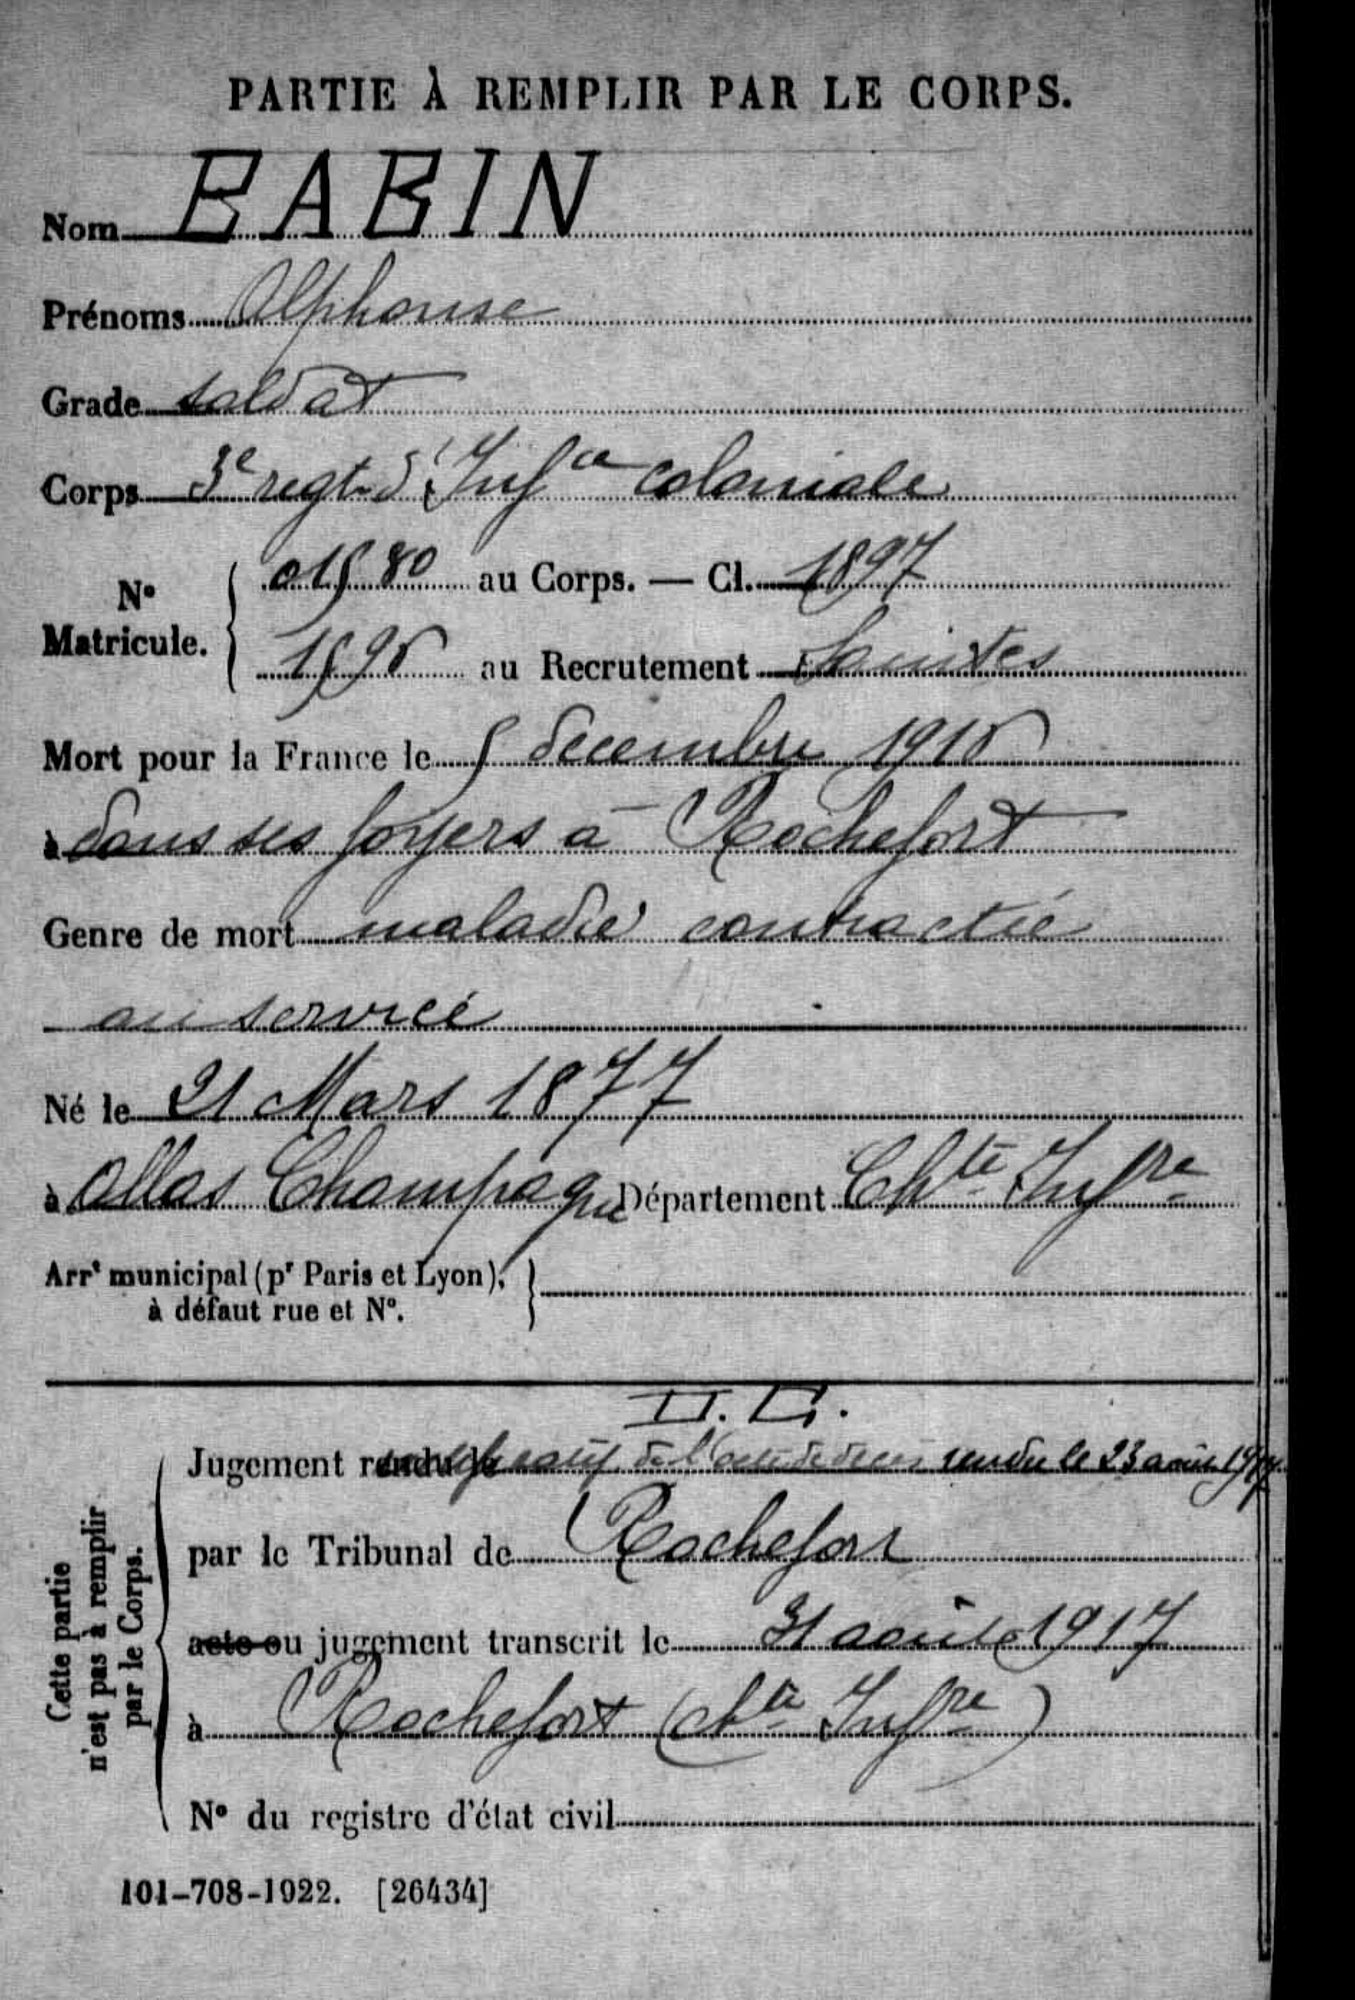 PARTIE À REMPLIR PAR LE CORPS.
Nom BABIN
Prénoms Alphonse
Grade soldat
Corps 3e regt d'Infie coloniale
N° Matricule. 01580 au Corps. — Cl. 1897
1595 au Recrutement Saintes
Mort pour la France le 5 décembre 1915
à dans ses foyers à Rochefort
Genre de mort maladie contractée
au service
Né le 21 Mars 1877
à Allas Champagne Département Chte Infre
Arrt municipal (pr Paris et Lyon),
à défaut rue et N°.
Jugement rendu le de l'acte de décès rendu le 23 août 1917
par le Tribunal de Rochefort
acte ou jugement transcrit le 31 août 1917
à Rochefort (chte Infre)
N° du registre d'état civil
Cette partie
n'est pas à remplir
par le Corps.
101-708-1922. [26434]